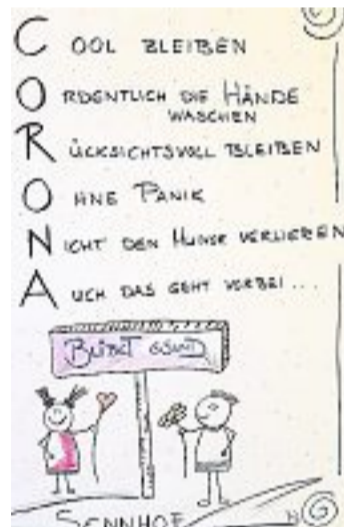 COOL BLEIBEN
ORDENTLICH DIE HÄNDE
WASCHEN
RÜCKSICHTSVOLL BLEIBEN
OHNE PANIK
NICHT DEN HUMOR VERLIEREN
AUCH DAS GEHT VORBEI...
BLIBET GSUND
SENNHOF